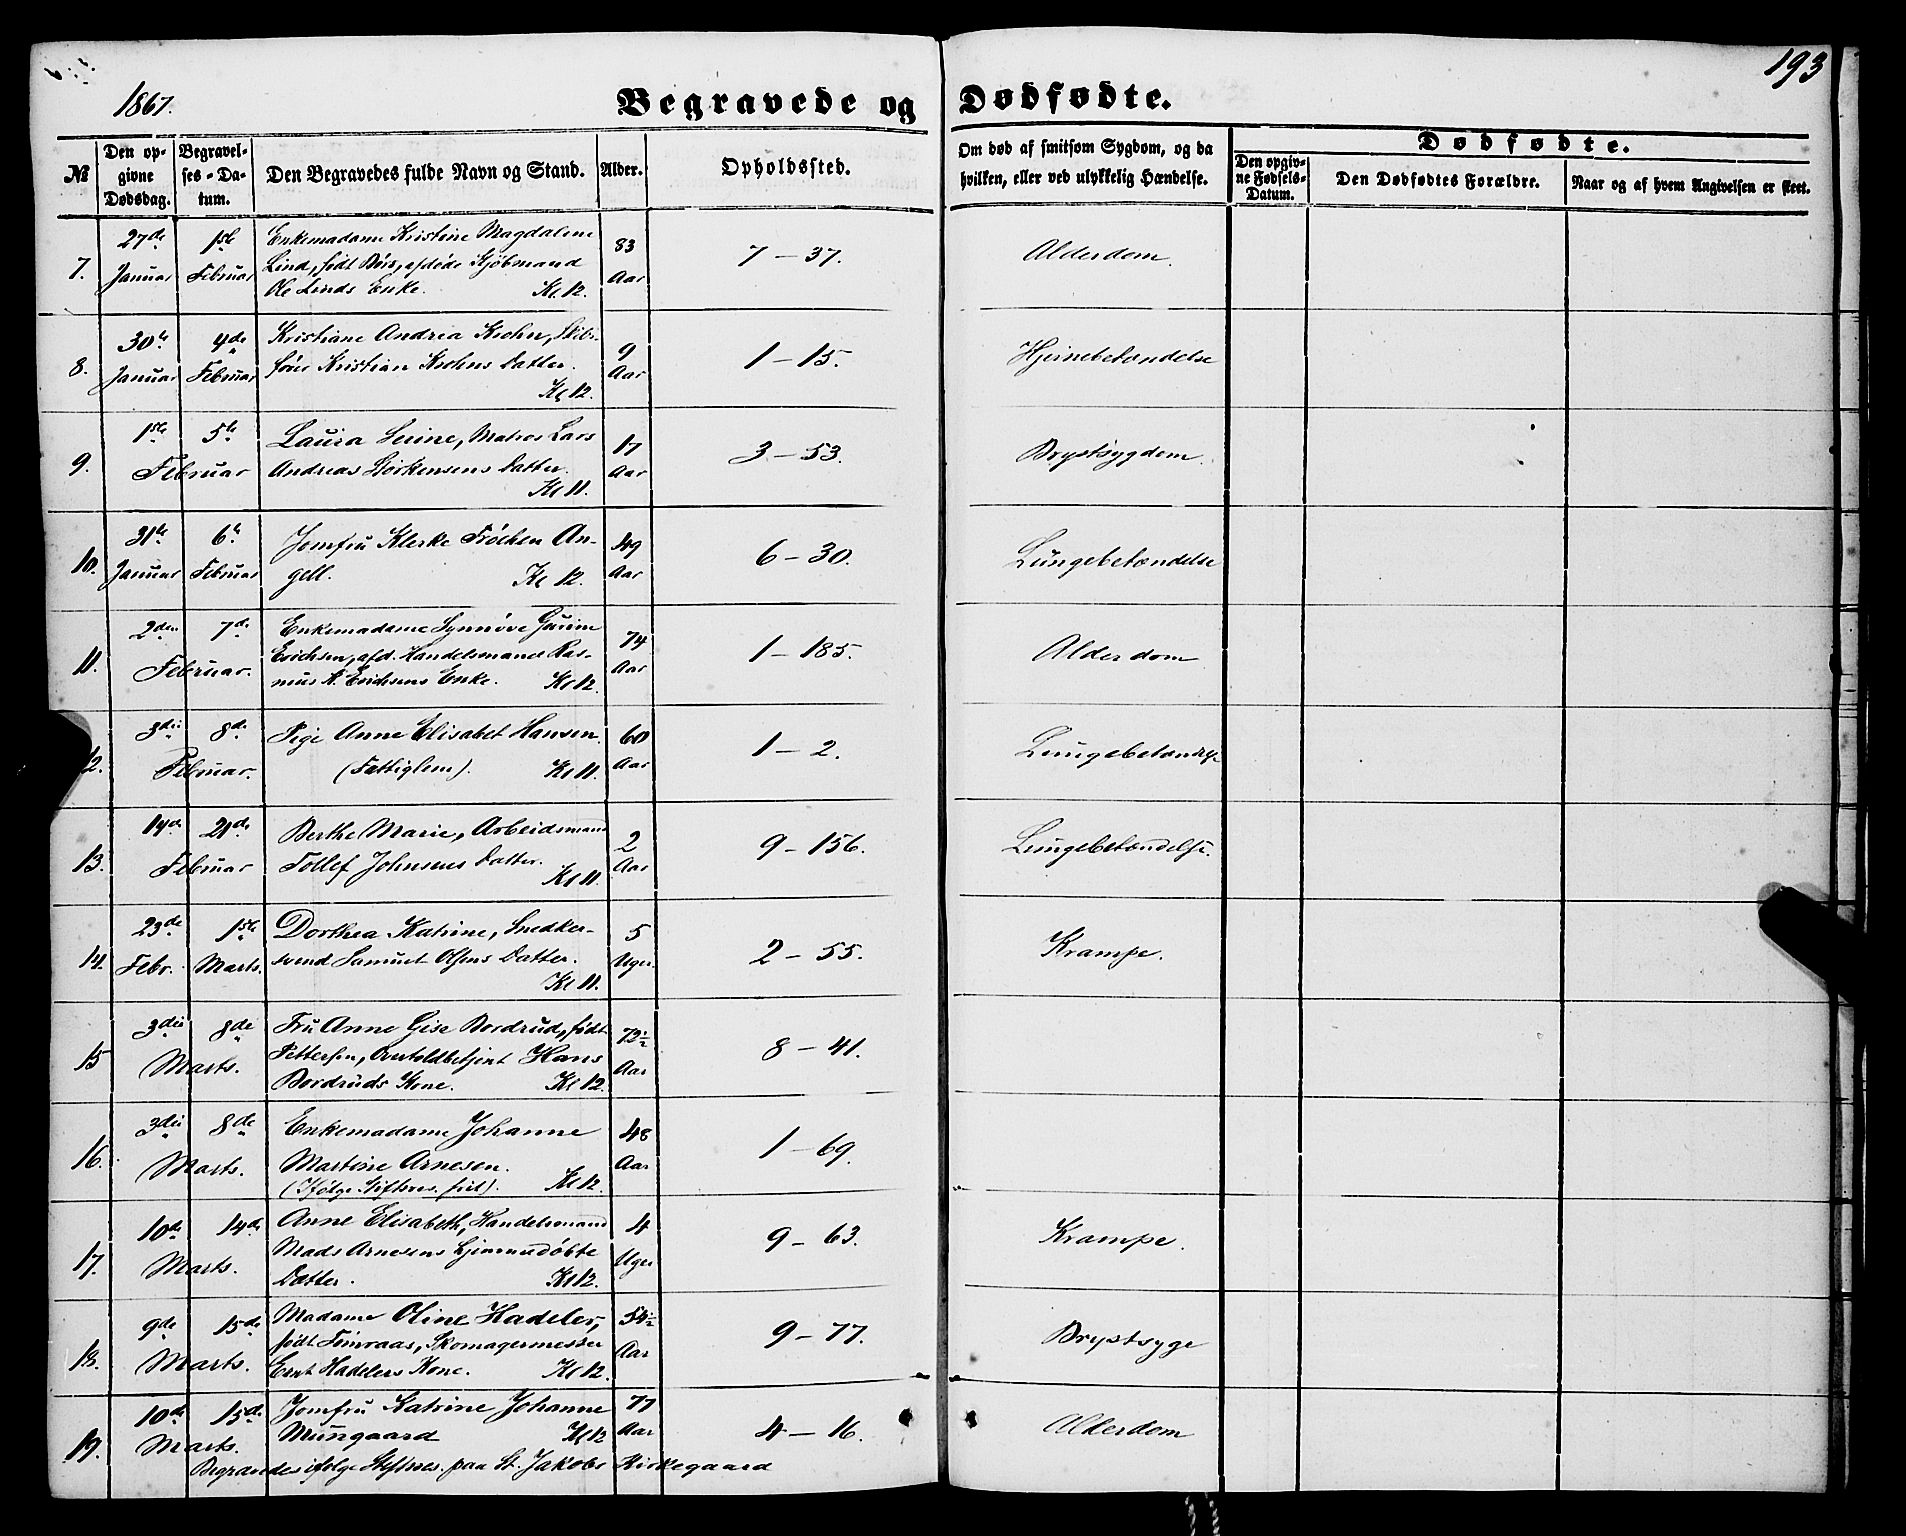 193
1867.
Begravede og Dødfødte.
№
Den opgivne Dødsdag.
Begravelses-Datum.
Den Begravedes fulde Navn og Stand.
Alder.
Opholdssted.
Om død af smitsom Sygdom, og da hvilken, eller ved ulykkelig Hændelse.
Dødfødte.
Den opgivne Fødsels-Datum.
Den Dødfødtes Forældre.
Naar og af hvem Angivelsen er skeet.
7. 27de Januar 1ste Februar Enkemadame Kristine Magdalene 83 Aar 7 – 37. Alderdom.
Lind, født afdøde Kjøbmand
Ole Linds Enke. Kl 12.
8. 30te Januar 4de Februar Kristiane Andrea Krohn, Skibs- 9 Aar 1 – 15. Hjernebetændelse
fører Kristian Krohns Datter.
Kl 12.
9. 1ste 5te Februar Laura Serine, Matros Lars 17 Aar 3 – 53. Brystsygdom.
Andreas Datter.
Kl 11.
10. 31te Januar 6te Februar Jomfru Klerke Frøchen An- 49 Aar 6 – 30. Lungebetændelse
gell. Kl 12.
11. 2den 7de Februar. Enkemadame Synnøve Gurine 74 Aar 1 – 185. Alderdom
Erichsen, afd. Handelsmand Ras-
mus A. Erichsens Enke. Kl 12.
12. 3die 8de Februar. Pige Anne Elisabet Hansen. 60 Aar 1 – 2. Lungebetændelse
(Fattiglem). Kl 11.
13. 14de 21de Februar Berthe Marie, Arbeidsmand 2 Aar 9 – 156. Lungebetændelse.
Tollef Johnsens Datter.
Kl 11.
14. 23de Febr. 1ste Marts. Dorthea Katrine, Snedker- 5 Uger. 2 – 55. Krampe.
svend Samuel Olsens Datter.
Kl 11.
15 3die 8de Marts. Fru Anne Gise Bordrud, født 72½ Aar 8 – 41.
Pettersen, Overtoldbetjent Hans
Bordruds Kone. Kl 12.
16. 3die 8de Marts. Enkemadame Johanne 48 Aar 1 – 69.
Martine Arnesen.
(Ifølge Skiftens. Kl 12.
17. 10de 14de Marts. Anne Elisabeth, Handelsmand 4 Uger 9 – 63. Krampe.
Mads Arnesens hjemmedøbte
Datter. Kl 12.
18. 9de 15de Marts. Madame Oline Hadeler, 54½ Aar 9 – 77. Brystsyge
født Feinraas, Skomagermester
Ernt Hadelers Kone. Kl 12.
19. 10de 15de Marts. Jomfru Katrine Johanne 77 Aar 4 – 16. Alderdom
Mungaard Kl 12
Begravedes ifølge Skiftens. paa St. Jakobs Kirkegaard